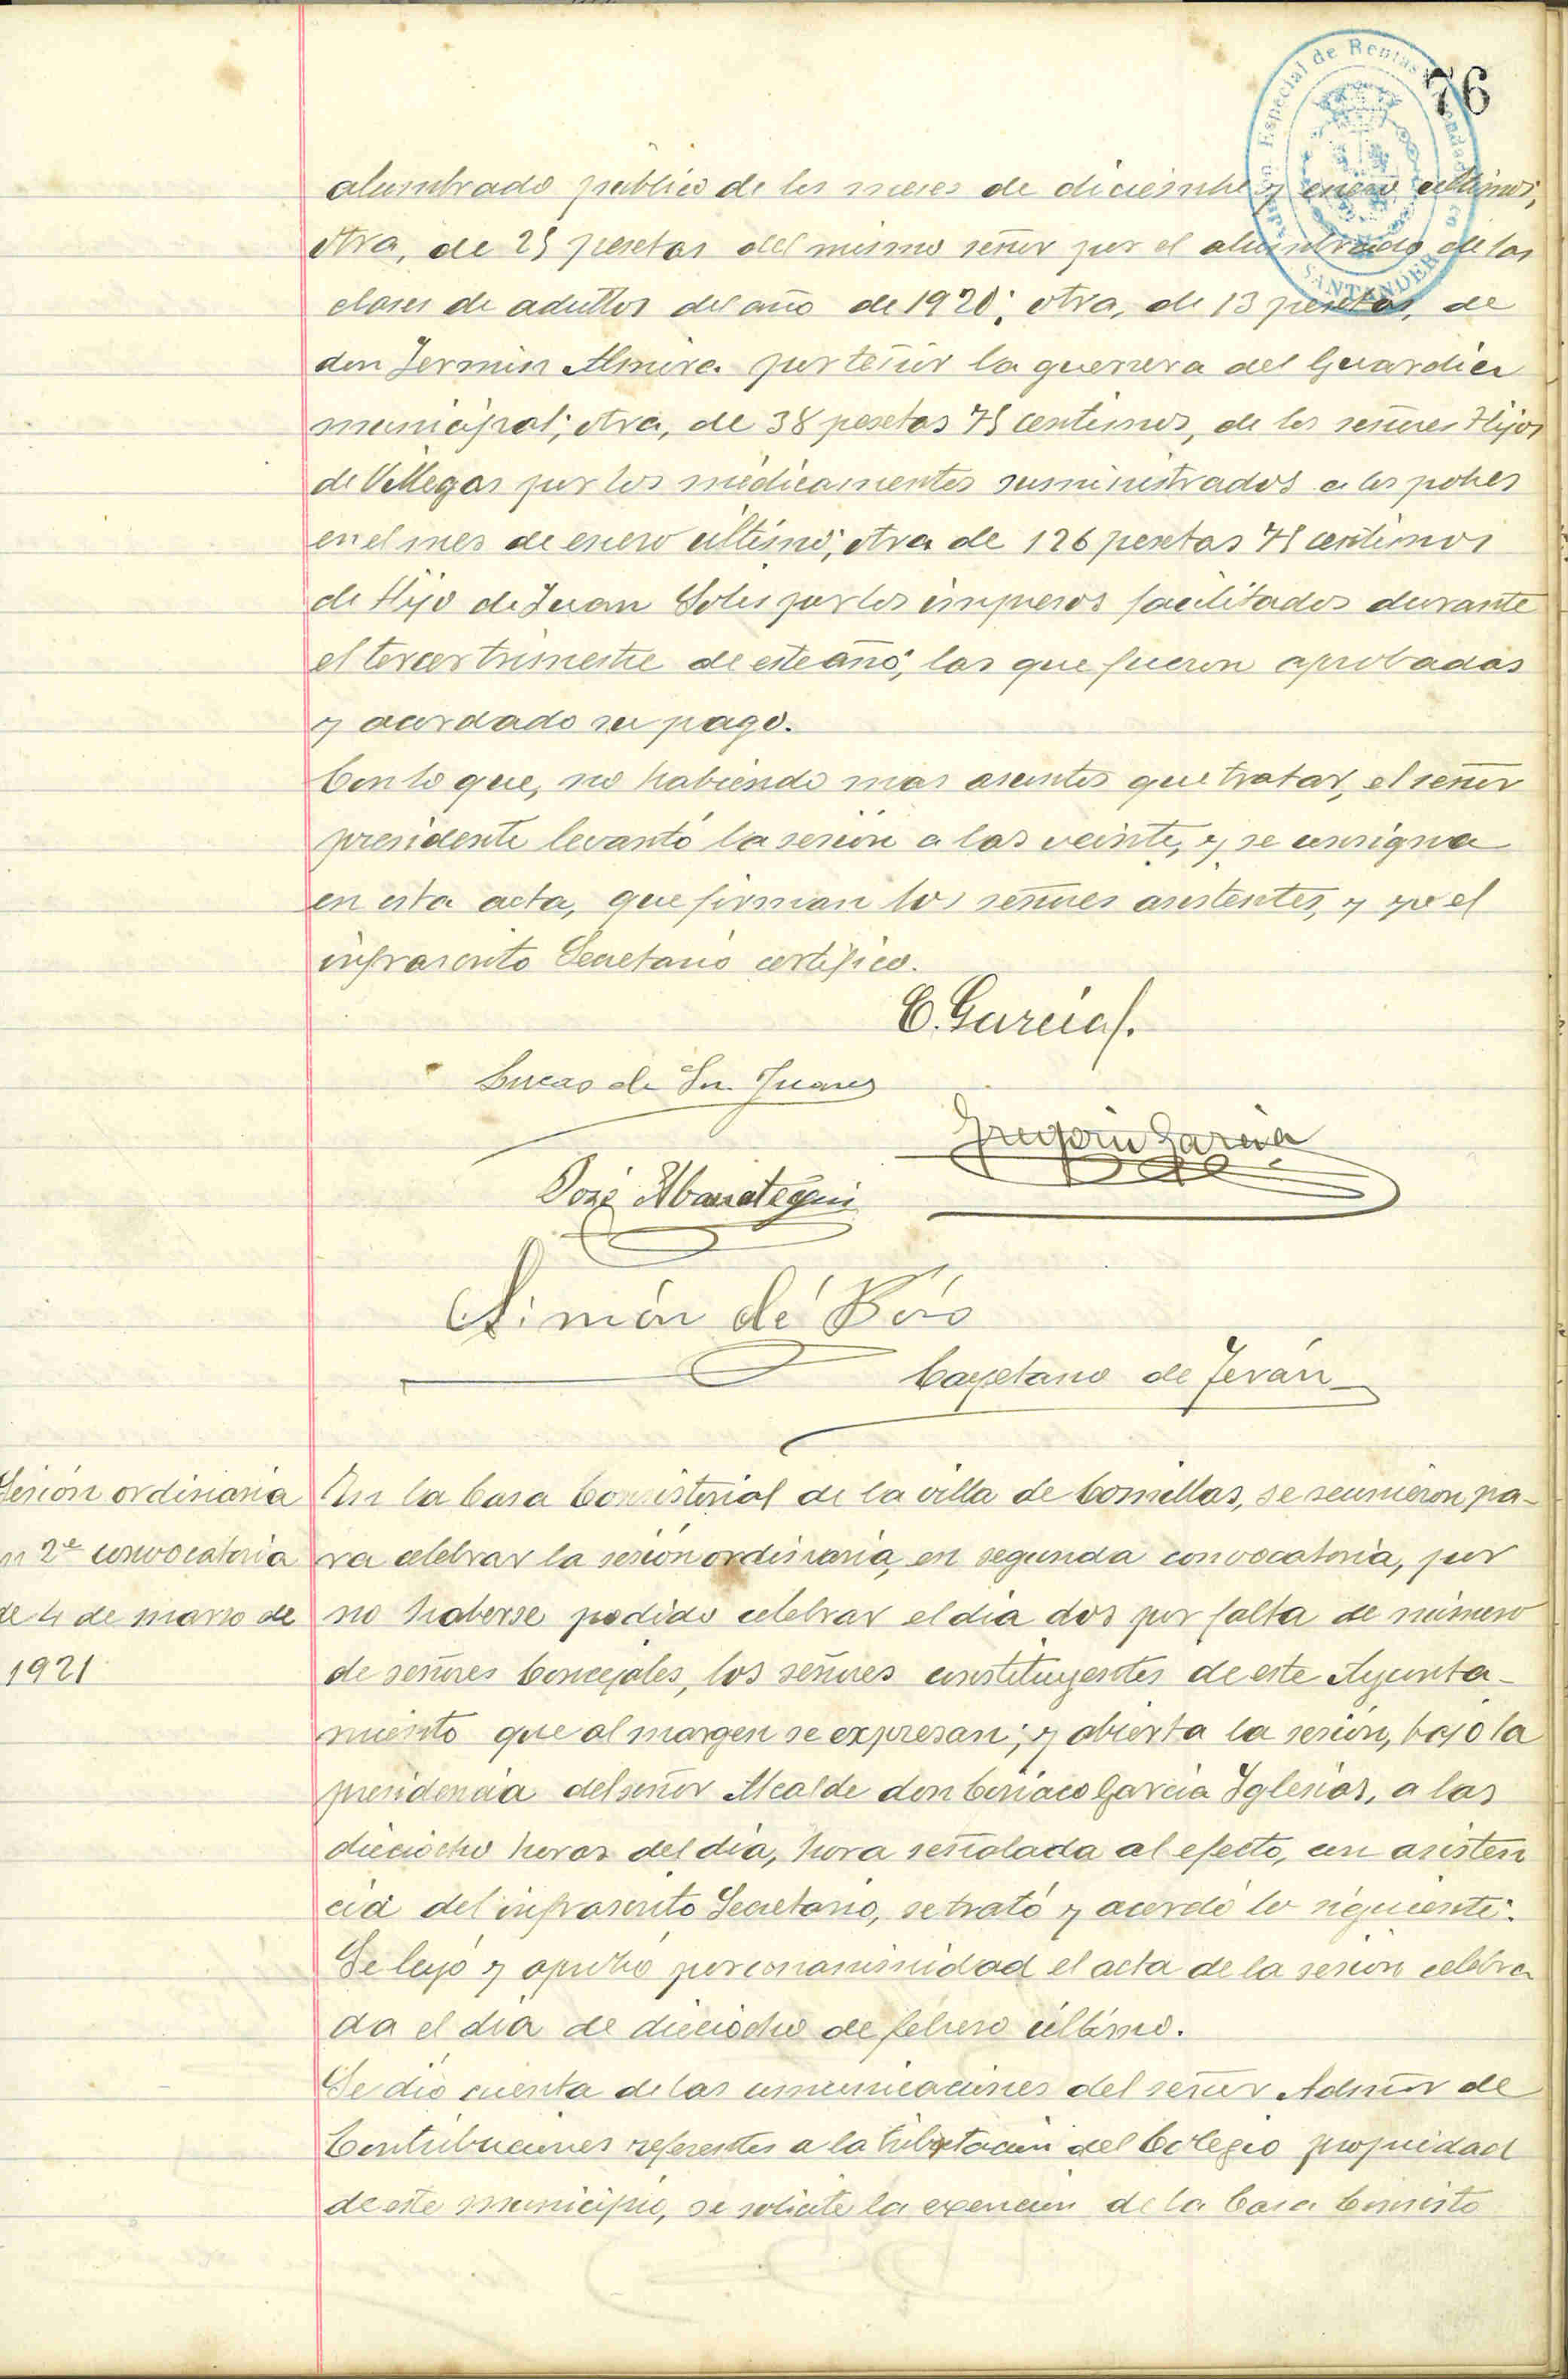 76
Especial de Rentas
SANTANDER
alumbrado público de los meses de diciembre y enero últimos,
otra, de 25 pesetas del mismo señor por el alumbrado de las
clases de adultos del año de 1920; otra, de 13 pesetas, de
don Fermin por teñir la guerrera del Guardia
municipal; otra, de 38 pesetas 75 centimos, de los señores Hijos
de Villegas por los medicamentos suministrados a los pobres
en el mes de enero último; otra de 126 pesetas 75 centimos
de Hijo de Juan por los impresos facilitados durante
el tercer trimestre de este año; las que fueron aprobadas
y acordado su pago.
Con lo que, no habiendo mas asuntos que tratar, el señor
presidente levantó la sesion a las veinte, y se consigna
en esta acta, que firman los señores asistentes, y yo el
infrascrito Secretario certifico.
C. Garcia I.
Lucas de Sn. Juan
Gregorio Garcia
José Abarategui
Simón de
Cayetano de Terán
Sesión ordinaria
en 2ª convocatoria
de 4 de marzo de
1921
En la Casa Consistorial de la villa de Comillas, se reunieron pa-
ra celebrar la sesion ordinaria, en segunda convocatoria, por
no haberse podido celebrar el dia dos por falta de número
de señores Concejales, los señores constituyentes de este Ayunta-
miento que al margen se expresan; y abierta la sesion, bajo la
presidencia del señor Alcalde don Ciriaco Garcia Iglesias, a las
dieciocho horas del dia, hora señalada al efecto, con asisten
cia del infrascrito Secretario, se trató y acordó lo siguiente:
Se leyó y aprobó por unanimidad el acta de la sesion celebra
da el dia de dieciocho de febrero último.
Se dio cuenta de las comunicaciones del señor Admor de
Contribuciones referentes a la tributacion del Colegio propiedad
de este municipio, se solicite la exencion de la Casa Consisto